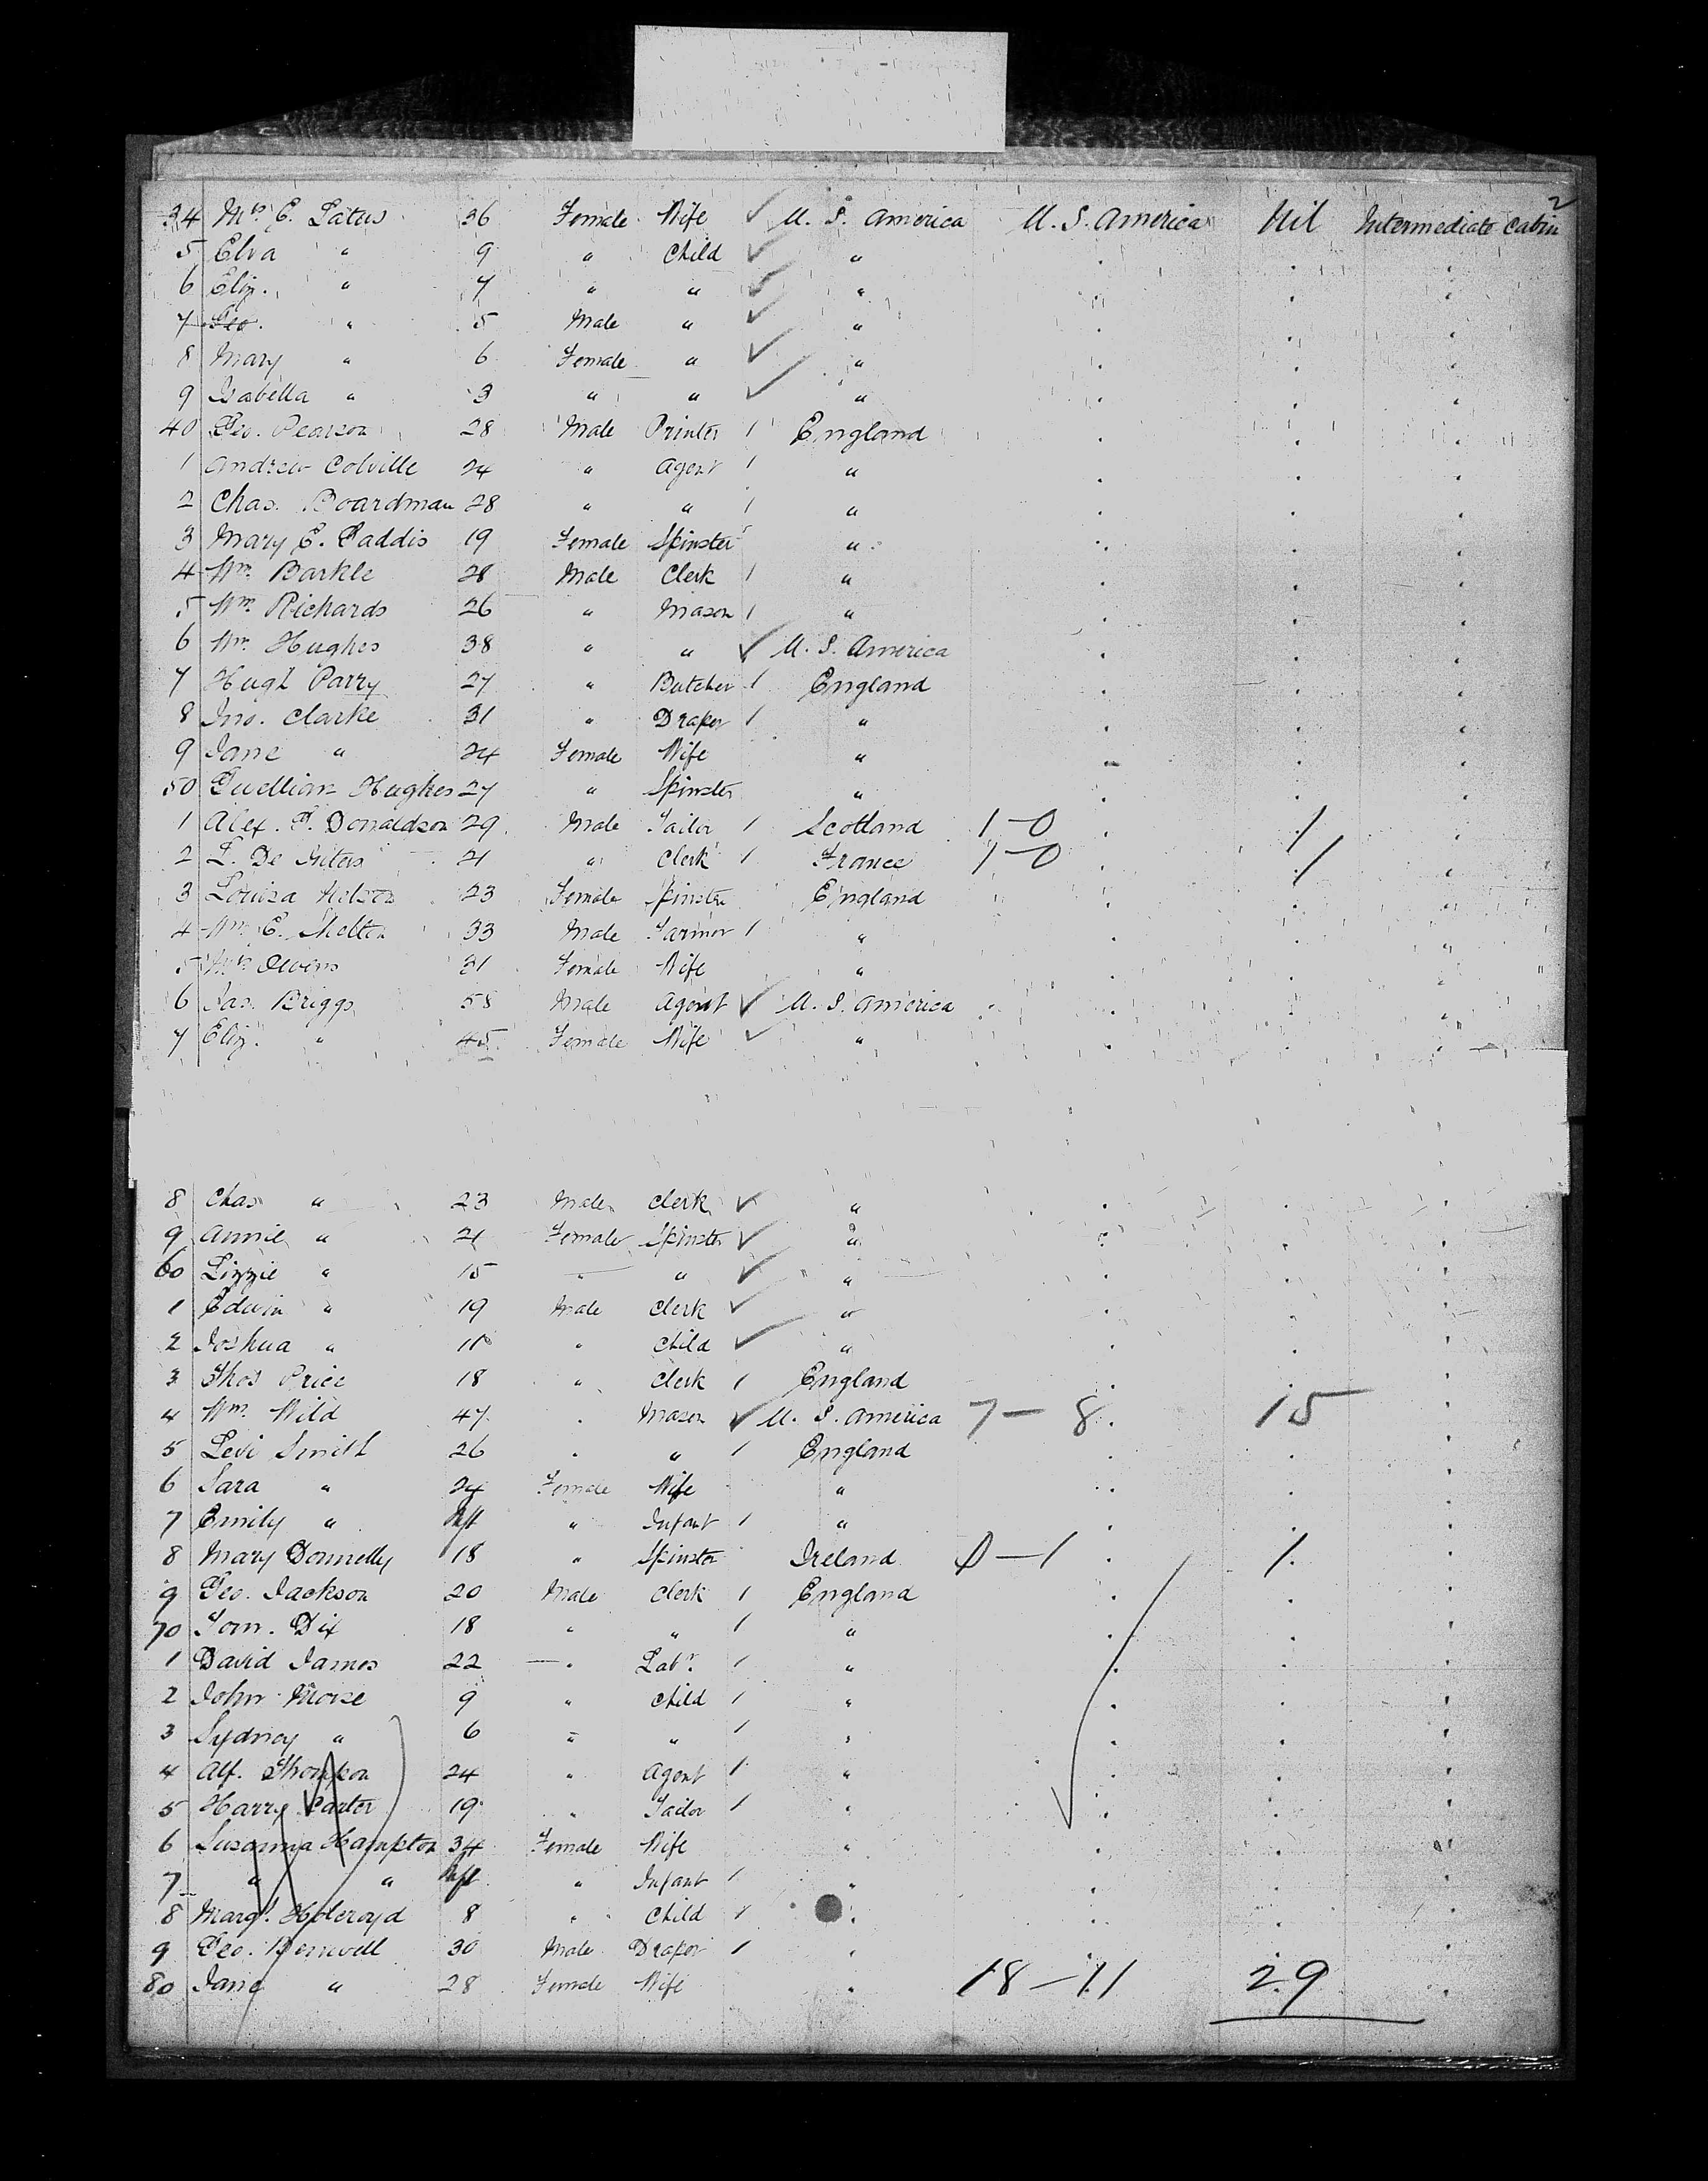 2
34 Mrs E. Latus 36 Female Wife ✓ U. S. America U. S. America Nil Intermediate Cabin
5 Elva " 9 " Child ✓ "
6 Eliz. " 7 " " ✓ "
7 Geo. " 5 Male " ✓ "
8 Mary " 6 Female " ✓ "
9 Isabella " 3 " " ✓ "
40 Geo. Pearson 28 Male Printer 1 England
1 Andrew Colville 24 " Agent 1 "
2 Chas. Boardman 28 " " 1 "
3 Mary E. Gaddis 19 Female Spinster "
4 Wm. Barkle 28 Male Clerk 1 "
5 Wm. Richards 26 " Mason 1 "
6 Wm. Hughes 38 " " ✓ U. S. America
7 Hugh Parry 27 " Butcher 1 England
8 Jno. Clarke 31 " Draper 1 "
9 Jane " 24 Female Wife "
50 Hughes 27 " Spinster "
1 Alex. Donaldson 29 Male Tailor 1 Scotland 1-0 1
2 L. De 21 " Clerk 1 France 1-0 1
3 Louisa 23 Female Spinster England
4 Wm. E. Shelton 33 Male Farmer 1 "
5 Mrs Owens 31 Female Wife "
6 Jas. Briggs 58 Male Agent ✓ U. S. America
7 Eliz. " 45 Female Wife ✓ "
8 Chas " 23 Male Clerk ✓ "
9 Annie " 21 Female Spinster ✓ "
60 Lizzie " 15 " " ✓ "
1 Edwin " 19 Male Clerk ✓ "
2 Joshua " 11 " Child ✓ "
3 Thos Price 18 " Clerk 1 England
4 Wm. Wild 47 " Mason ✓ U. S. America 7-8 15
5 Levi Smith 26 " " 1 England
6 Sara " 24 Female Wife "
7 Emily " Inft " Infant 1 "
8 Mary Donnelly 18 " Spinster Ireland 0-1 1
9 Geo. Jackson 20 Male Clerk 1 England
70 Tom. Dix 18 " " 1 "
1 David James 22 " Labr. 1 "
2 John Morse 9 " Child 1 "
3 Sydney " 6 " " 1 "
4 Alf. Thompson 24 " Agent 1 "
5 Harry Carter 19 " Tailor 1 "
6 Susanna Hampton 34 Female Wife "
7 " " Inft " Infant 1 "
8 Margt. Holcroyd 8 " Child 1 "
9 Geo. 30 Male Draper 1 "
80 Jane " 28 Female Wife " 18-11 29